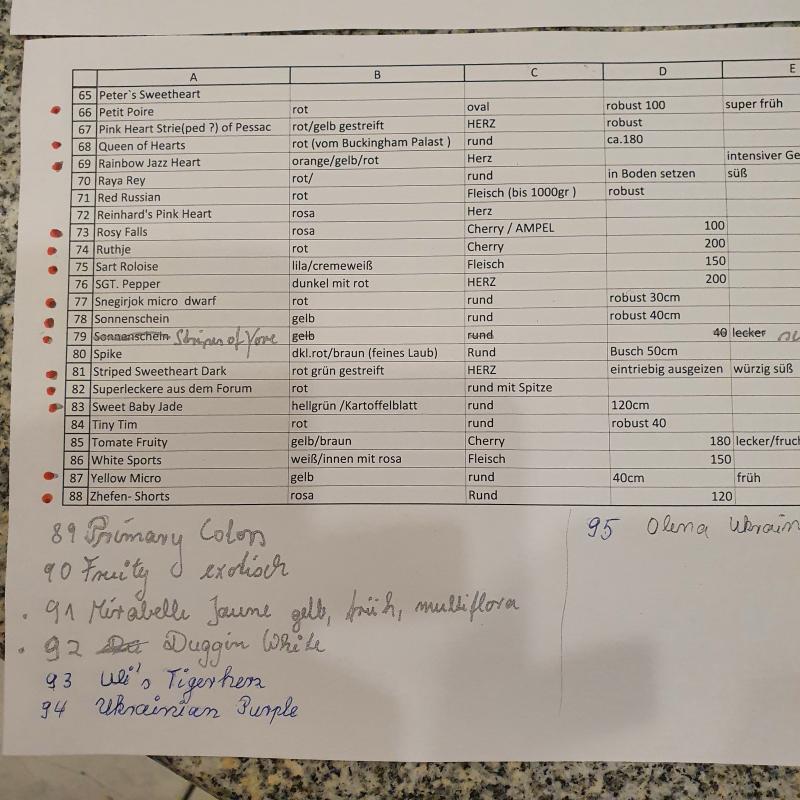 A B C D E
65 Peter`s Sweetheart
66 Petit Poire rot oval robust 100 super früh
67 Pink Heart Strie(ped ?) of Pessac rot/gelb gestreift HERZ robust
68 Queen of Hearts rot (vom Buckingham Palast ) rund ca.180
69 Rainbow Jazz Heart orange/gelb/rot Herz intensiver Ge
70 Raya Rey rot/ rund in Boden setzen süß
71 Red Russian rot Fleisch (bis 1000gr ) robust
72 Reinhard's Pink Heart rosa Herz
73 Rosy Falls rosa Cherry / AMPEL 100
74 Ruthje rot Cherry 200
75 Sart Roloise lila/cremeweiß Fleisch 150
76 SGT. Pepper dunkel mit rot HERZ 200
77 Snegirjok micro dwarf rot rund robust 30cm
78 Sonnenschein gelb rund robust 40cm
79 Sonnenschein Stripes of Yore gelb rund 40 lecker
80 Spike dkl.rot/braun (feines Laub) Rund Busch 50cm
81 Striped Sweetheart Dark rot grün gestreift HERZ eintriebig ausgeizen würzig süß
82 Superleckere aus dem Forum rot rund mit Spitze
83 Sweet Baby Jade hellgrün /Kartoffelblatt rund 120cm
84 Tiny Tim rot rund robust 40
85 Tomate Fruity gelb/braun Cherry 180 lecker/fruch
86 White Sports weiß/innen mit rosa Fleisch 150
87 Yellow Micro gelb rund 40cm früh
88 Zhefen- Shorts rosa Rund 120
89 Primary Colors
90 Fruity exotisch
91 Mirabelle Jaune gelb, früh, multiflora
92 Duggin White
93 Uli's Tigerherz
94 Ukrainian Purple
95 Olena Ukrain